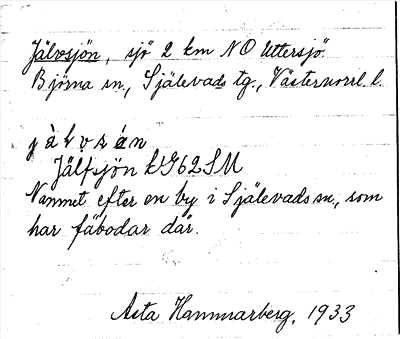 Jälvsjön, sjö 2 km NO Uttersjö.
Björna sn., Själevads tg., Västernorrl. l.
Jälfsjön kG62SM
Namnet efter en by i Själevads sn., som
har fäbodar där.
Asta Hammarberg, 1933